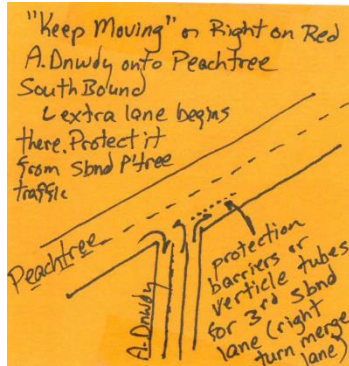 "Keep Moving" or Right on Red
A. Dnwdy onto Peachtree
South Bound
extra lane begins
there. Protect it
from Sbnd P'tree
traffic
Peachtree
A. Dnwdy
protection
barriers or
verticle tubes
for 3rd sbnd
lane (right
turn merge
lane)